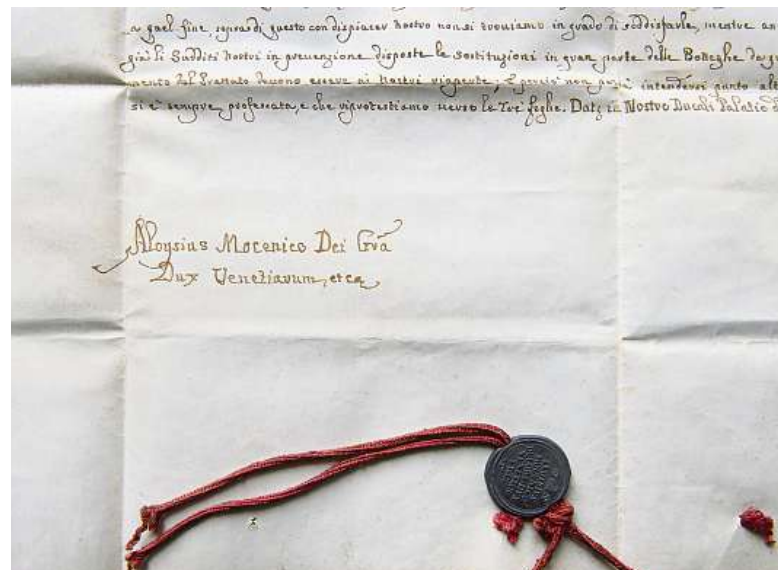 a quel fine, sopra di questo con dispiacer Nostro non si troviamo in grado di soddisfarle, mentre an
già li Sudditi Nostri in prevenzione disposte le sostituzioni in gran parte delle Botteghe da
mento del Prenato devono essere ai Nostri intendersi punto alt
si è sempre professata, e che riprotestiamo verso le Tre feghe. Datç in Nostro Ducali Palatio d
Aloysius Mocenico Dei Grâ
Dux Venetiarum, etcq